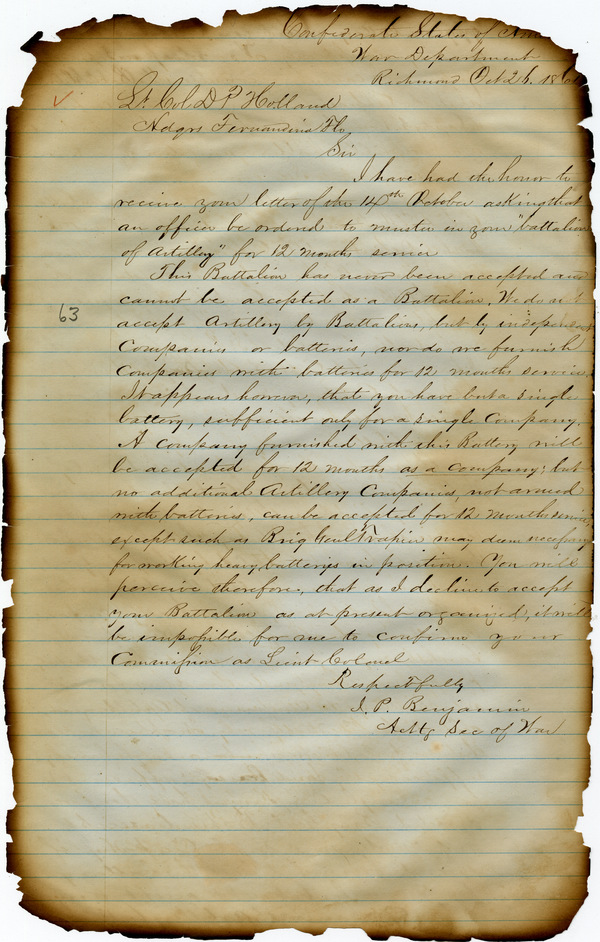 Confederate States of Am
War Department
Richmond Oct 26. 186
Lt. Col D P Holland
Hdqrs Fernandina Flo
Sir
I have had the honor to
receive your letter of the 14th October asking that
an officer be ordered to muster in your "battalion
of Artillery" for 12 months service
This Battalion has never been accepted and
cannot be accepted as a Battalion. We do not
63
accept Artillery by Battalions, but by independent
Companies or batteries, nor do we furnish
Companies with batteries for 12 months service.
It appears however, that you have but a single
battery, sufficient only for a single Company.
A company furnished with this Battery will
be accepted for 12 months as a company; but
no additional Artillery Companies, not armed
with batteries, can be accepted for 12 months service
except such as Brig Genl Trapier may deem necessary
for working heavy batteries in position. You will
perceive therefore, that as I decline to accept
your Battalion as at present organized, it will
be impossible for me to confirm your
Commission as Lieut Colonel
Respectfully
J. P. Benjamin
Actg Sec of War